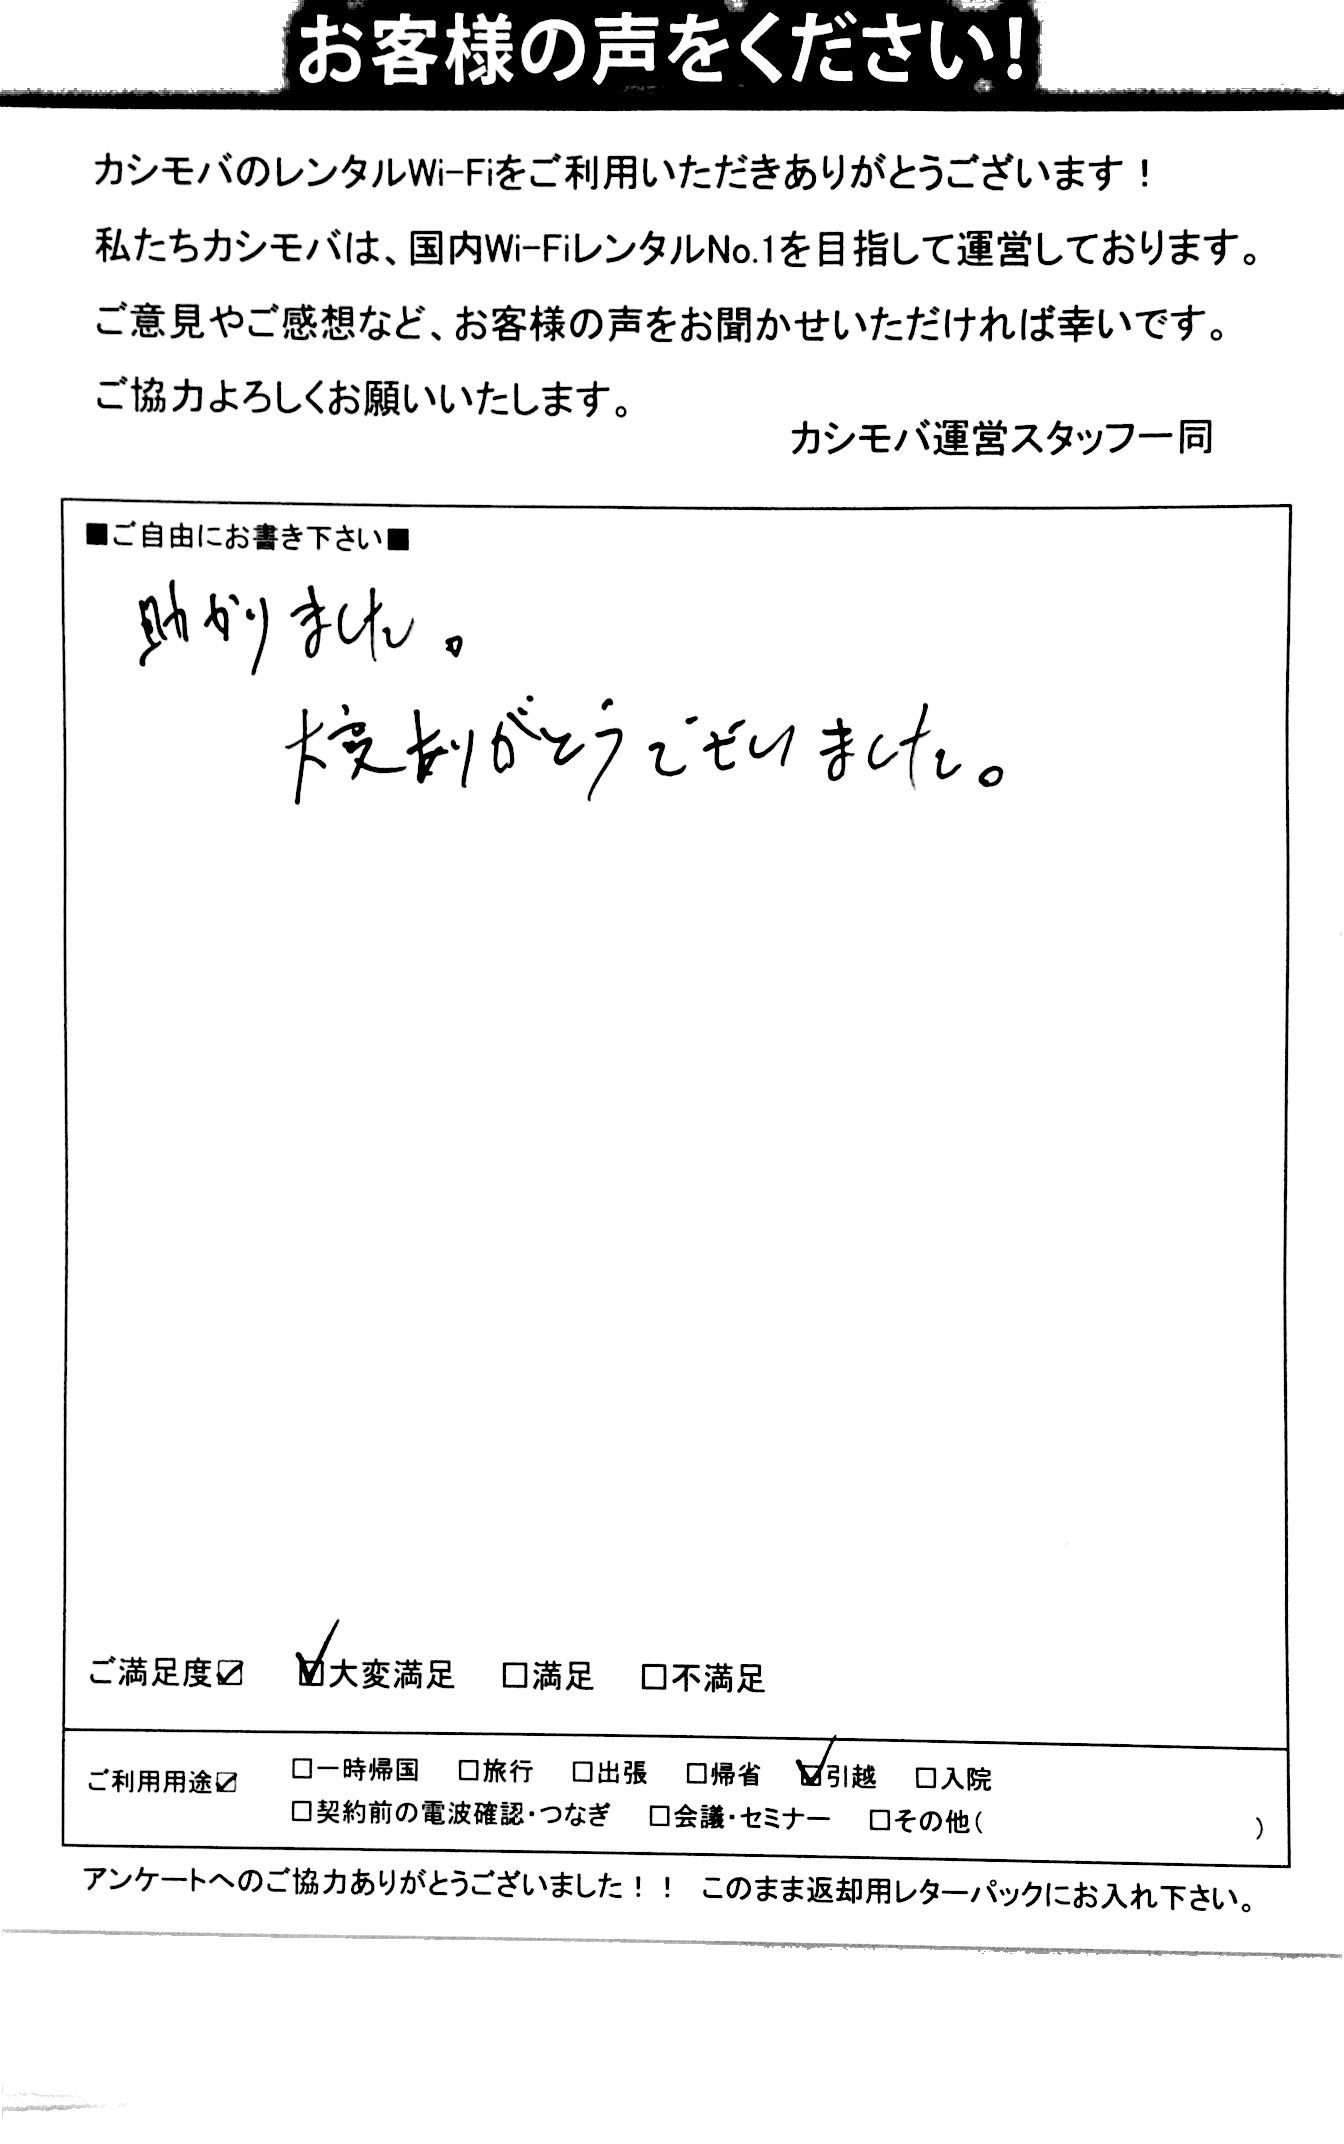 お客様の声をください!
カシモバのレンタルWi-Fiをご利用いただきありがとうございます!
私たちカシモバは、国内Wi-FiレンタルNo.1を目指して運営しております。
ご意見やご感想など、お客様の声をお聞かせいただければ幸いです。
ご協力よろしくお願いいたします。
カシモバ運営スタッフ一同
■ご自由にお書き下さい■
助かりました。
大変ありがとうございました。
ご満足度☑ ☑大変満足 □満足 □不満足
ご利用用途☑ □一時帰国 □旅行 □出張 □帰省 ☑引越 □入院
□契約前の電波確認・つなぎ □会議・セミナー □その他( )
アンケートへのご協力ありがとうございました!! このまま返却用レターパックにお入れ下さい。